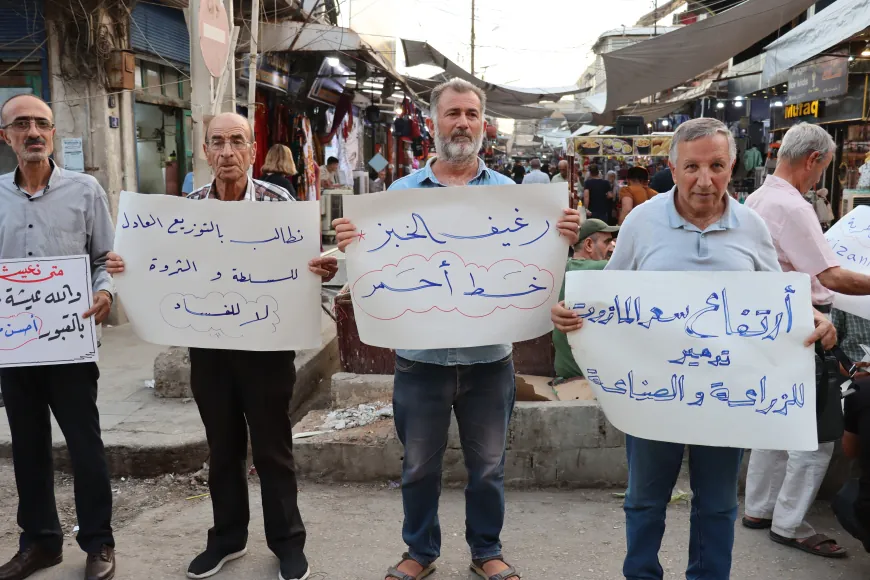 متى نعيش
والله عيشة
بالقبور أحسن
نطالب بالتوزيع العادل
للسلطة و الثروة
لا للفساد
رغيف الخبز
خط أحمر
أرتفاع سعر المازوت
تدمير
للزراعة و الصناعة
Mufaq